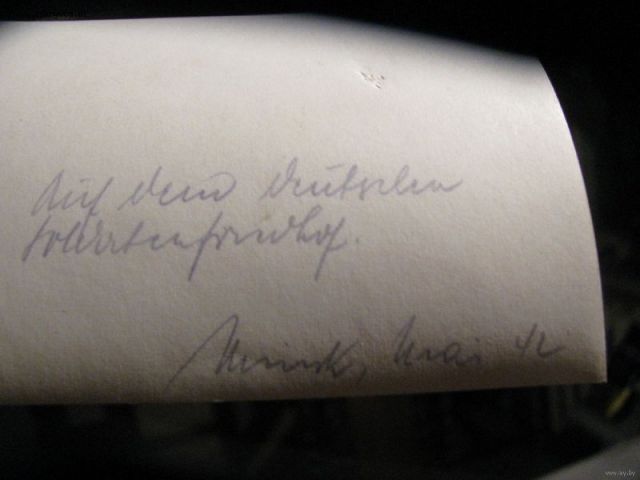 Auf dem deutschen
Soldatenfriedhof.
Minsk, Mai 42
www.ay.by